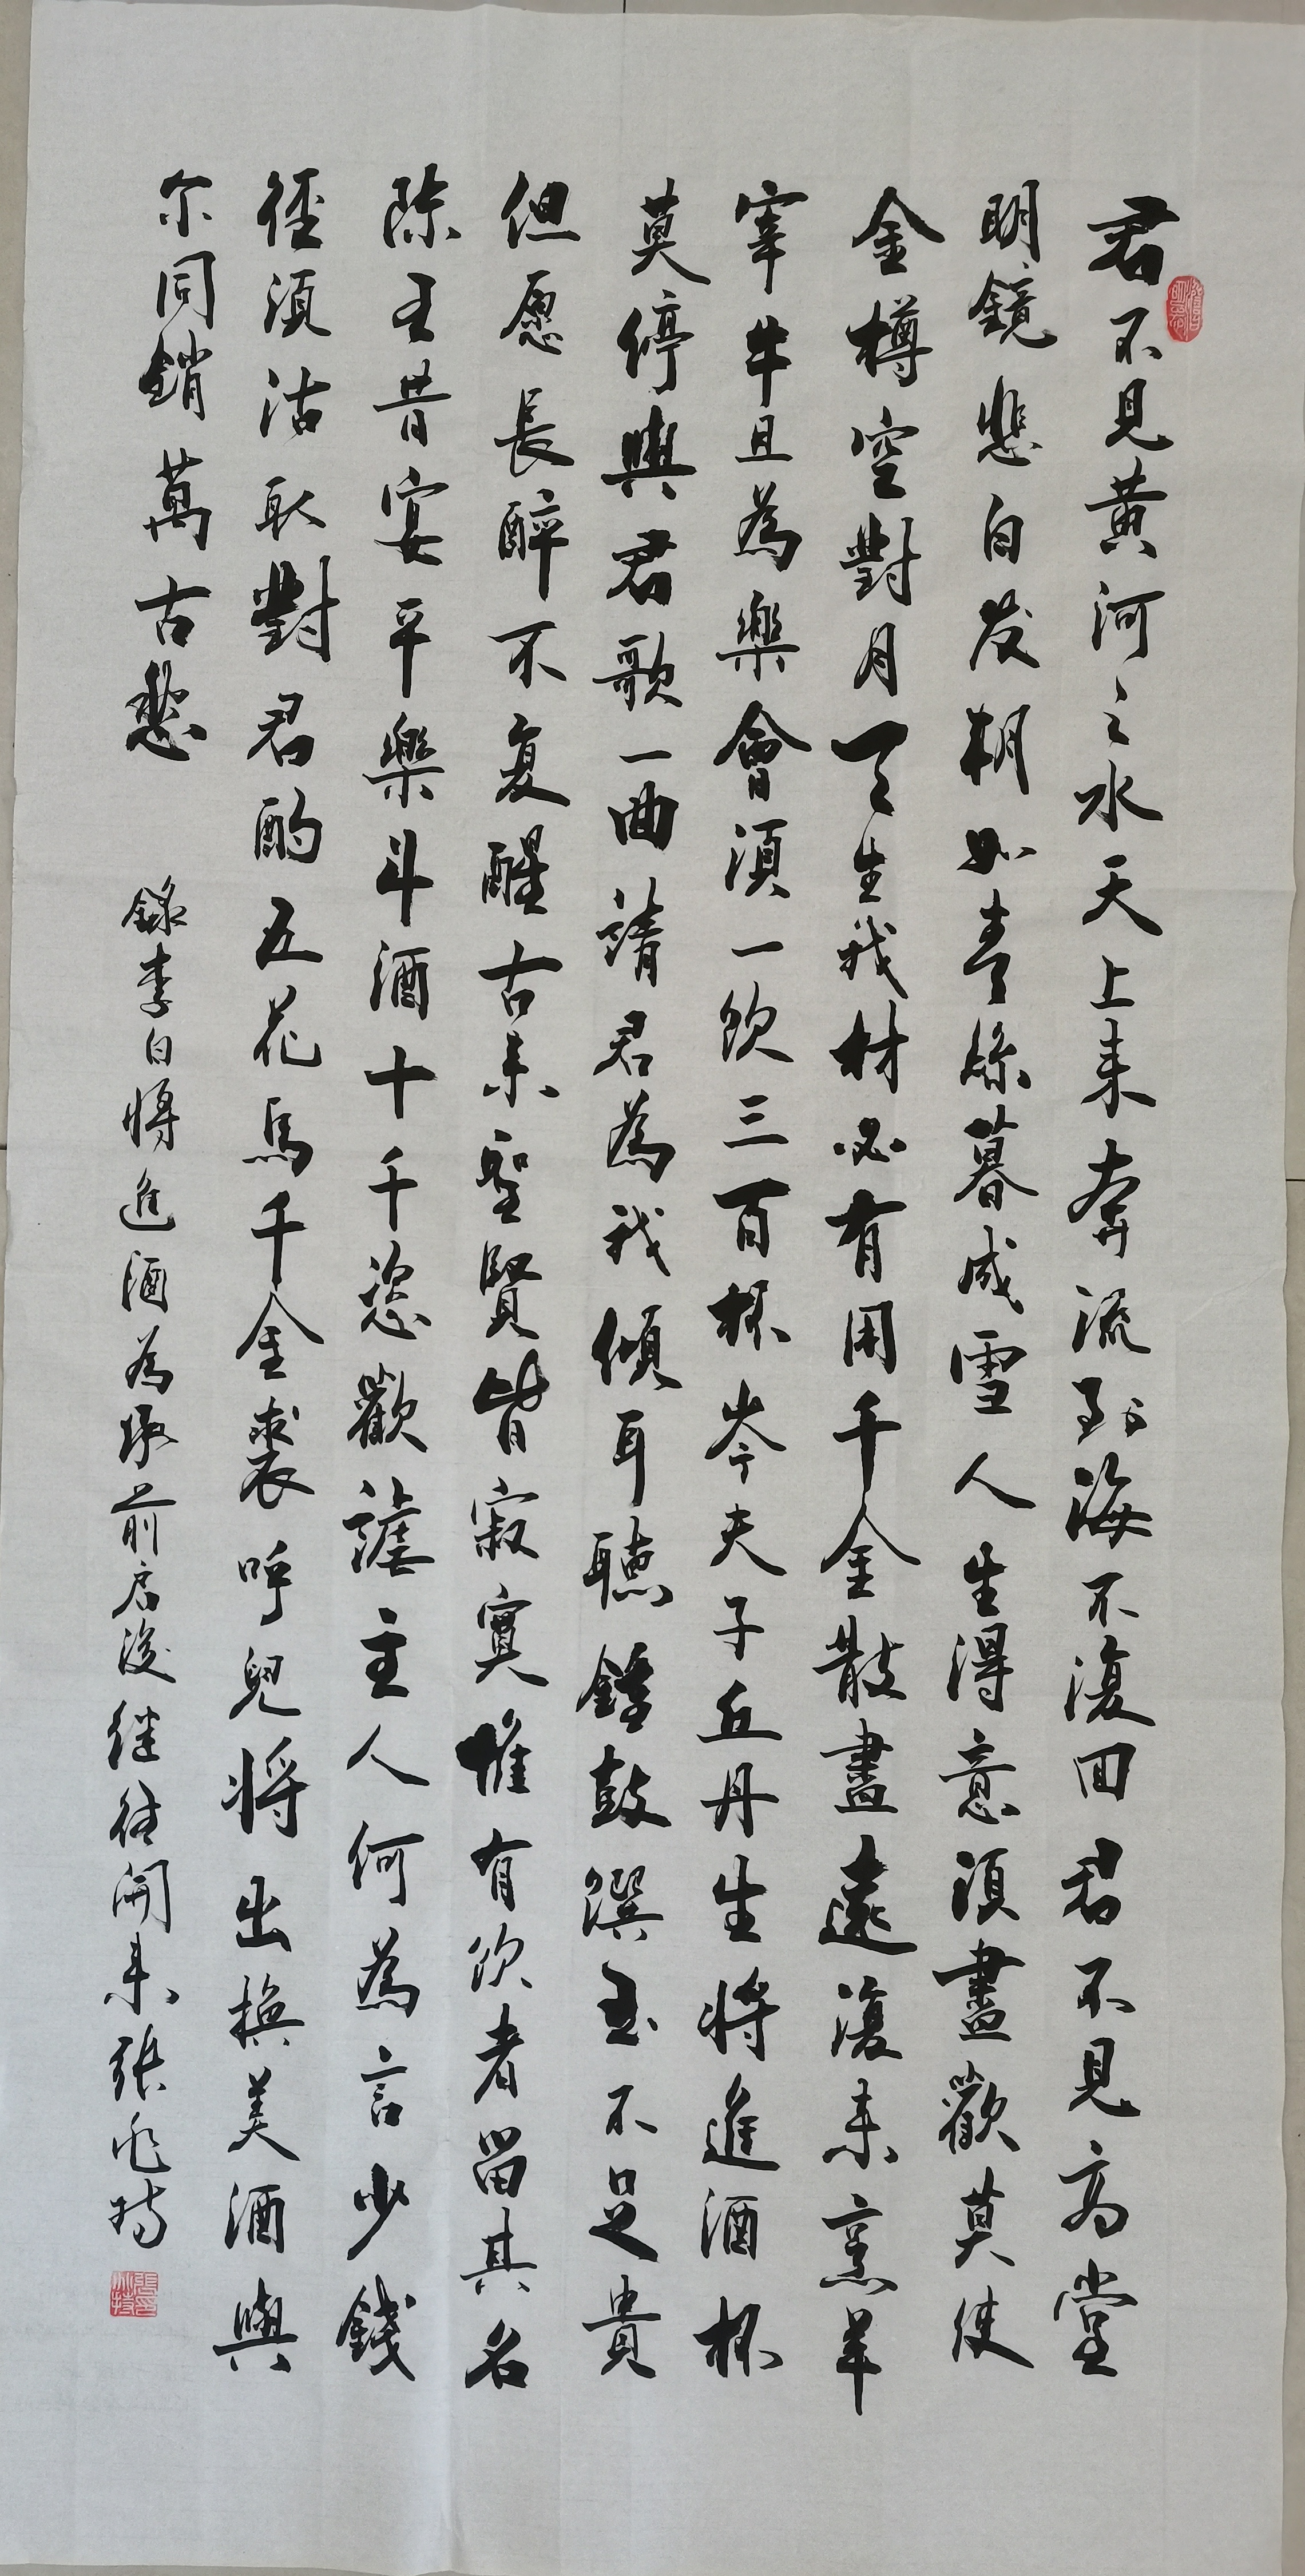 君不見黄河之水天上来奔流到海不復回君不見高堂
明鏡悲白发朝如青絲暮成雪人生得意須盡歡莫使
金樽空對月天生我材必有用千金散盡還復来烹羊
宰牛且為樂會須一飲三百杯岑夫子丘丹生将進酒杯
莫停與君歌一曲請君為我傾耳聽鐘鼓饌玉不足貴
但愿長醉不复醒古来聖賢皆寂寞惟有飲者留其名
陳王昔宴平樂斗酒十千恣歡謔主人何為言少錢
徑須沽取對君酌五花馬千金裘呼兒将出换美酒與
尔同銷萬古愁
錄李白將進酒為承前启後继往開来張